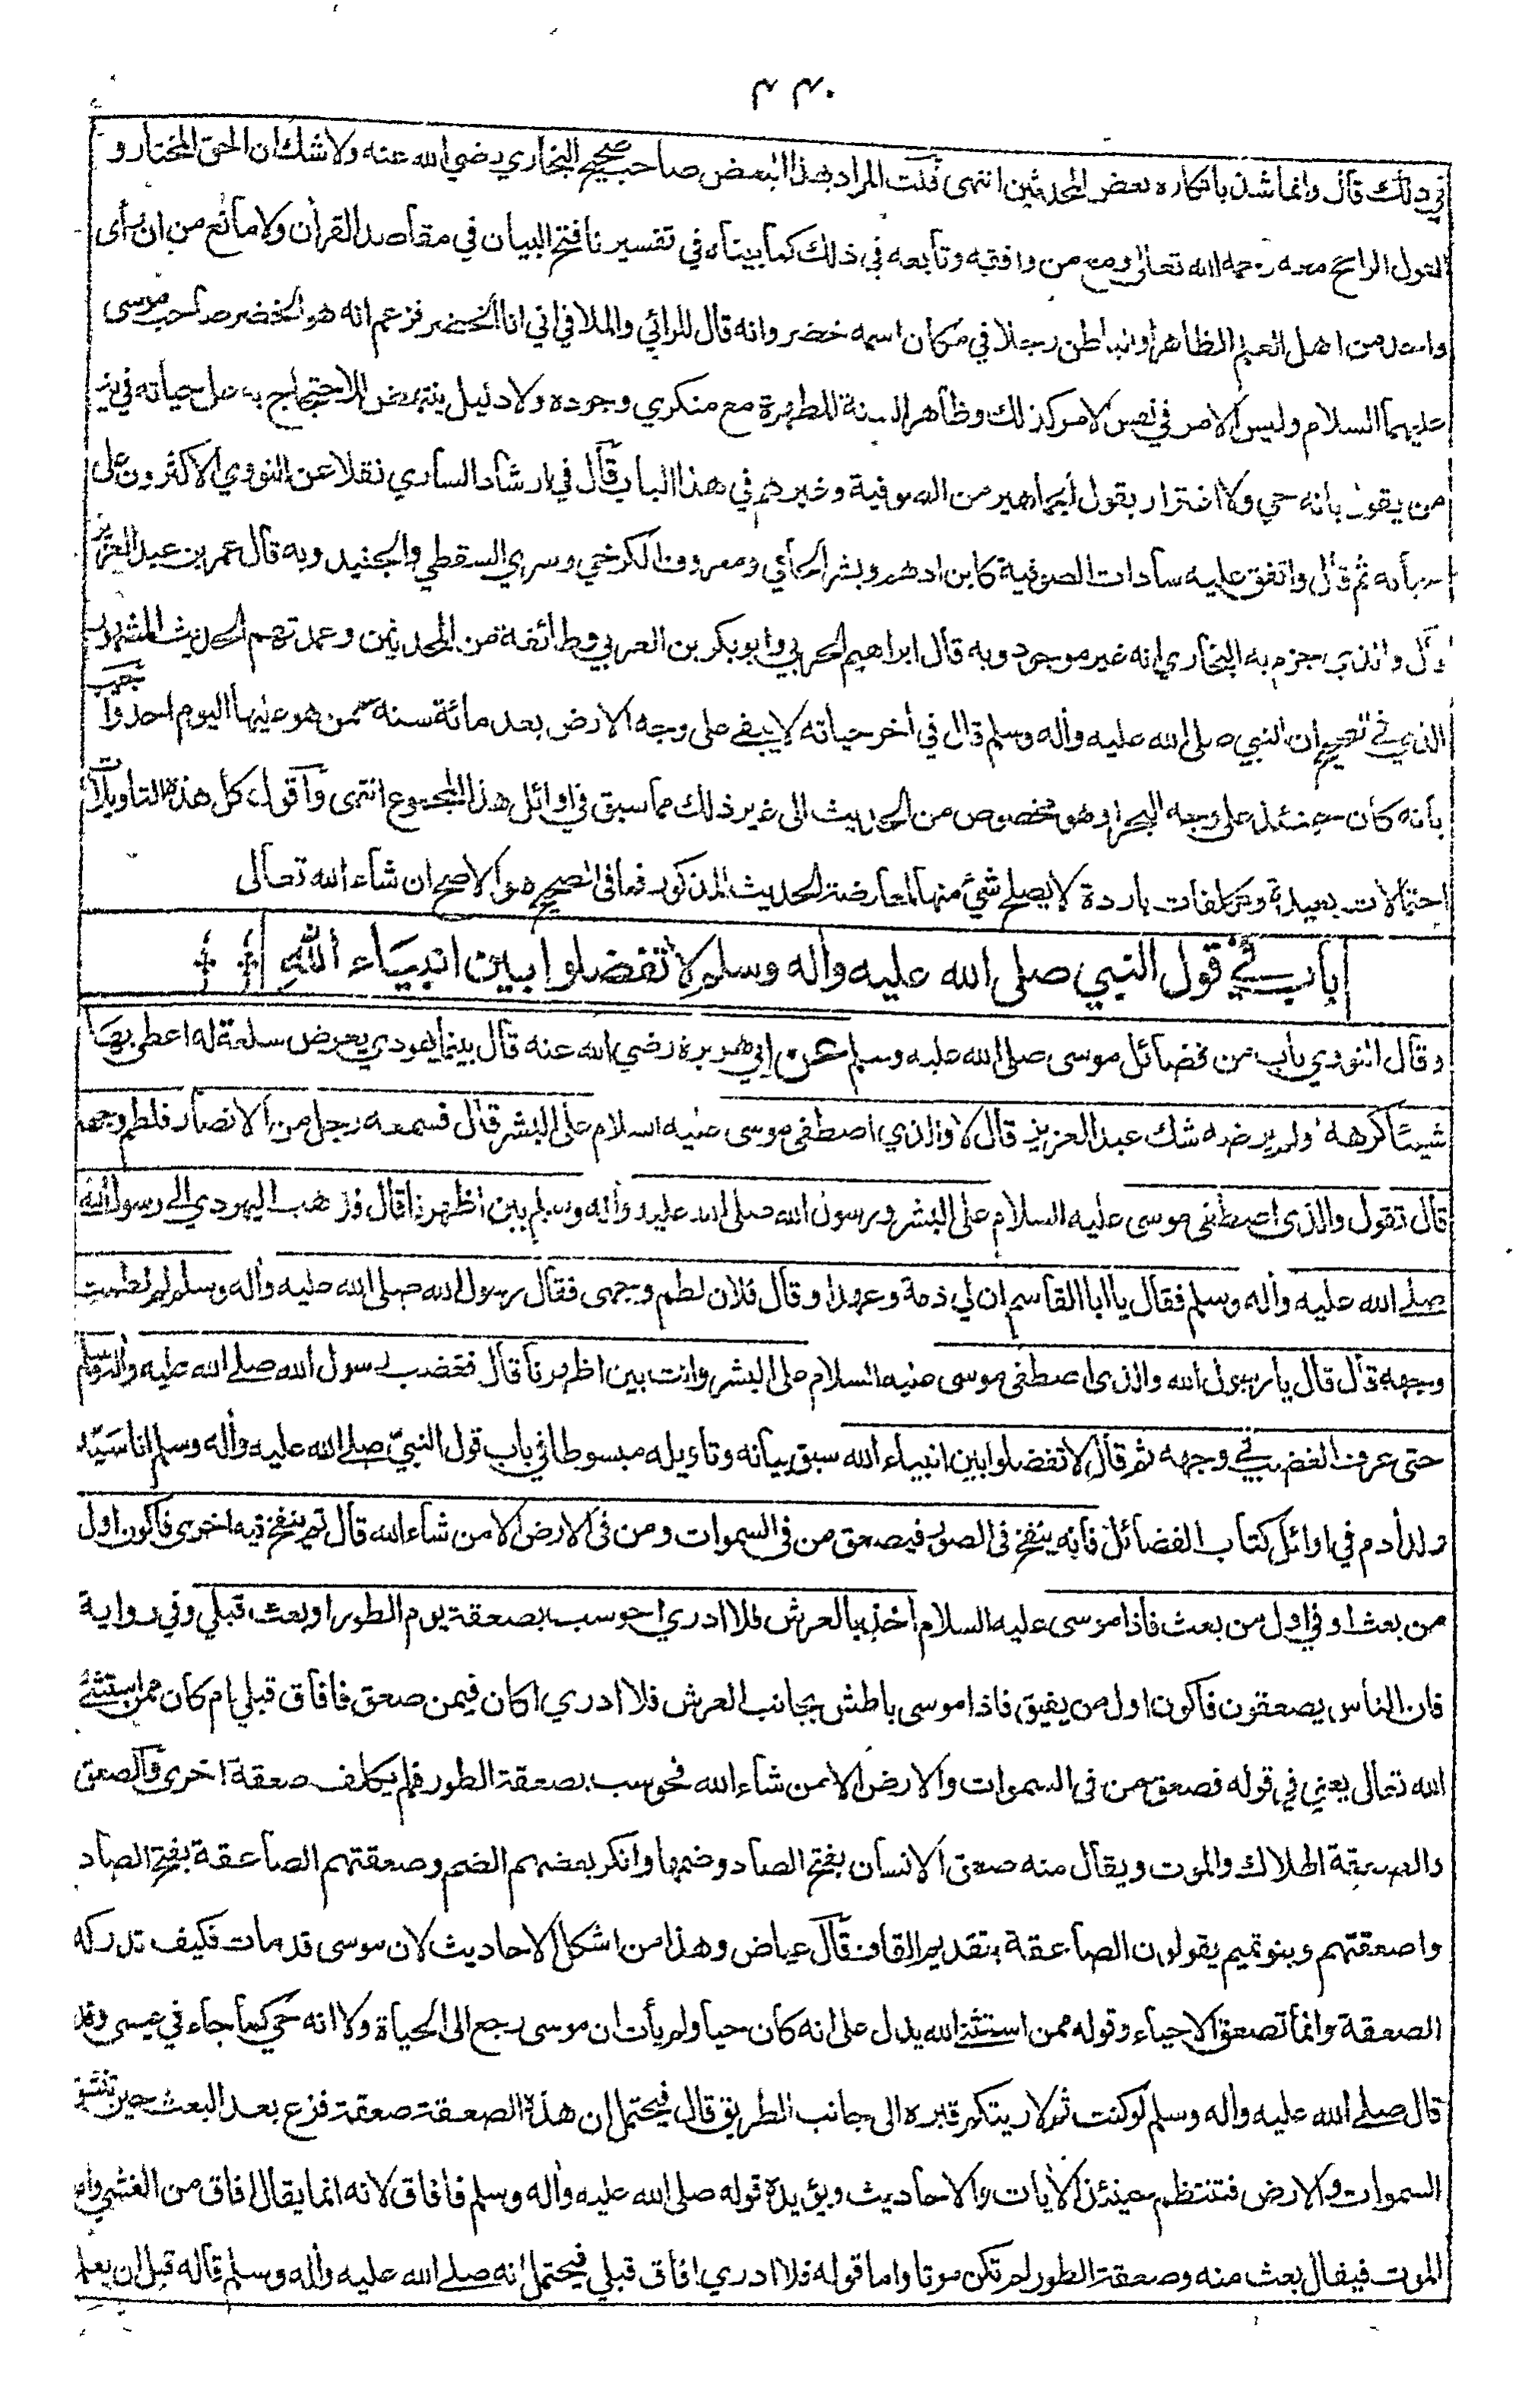 ٤٣٠
في ذلك قال وانما شذ بانكاره بعض المحدثين انتهى قلت المراد بهذا البعض صاحب صحيح البخاري رضي الله عنه ولا شك ان الحق المختار و
القول الراجح معه رحمه الله تعالى ومع من وافقه وتابعه في ذلك كما بيناه في تفسيرنا فتح البيان في مقاصد القرآن ولا مانع من ان رأى
واحد من اهل العلم الظاهر او الباطن رجلا في مكان اسمه خضر وانه قال للرائي والملاقي اني انا الخضر فزعم انه هو الخضر صاحب موسى
عليهما السلام وليس الامر في نفس الامر كذلك وظاهر السنة المطهرة مع منكري وجوده ولا دليل ينتهض للاحتجاج به على حياته في
من يقول بانه حي ولا اغترار بقول الجماهير من الصوفية وغيرهم في هذا الباب قال في ارشاد الساري نقلا عن النووي الاكثرون على
حياته ثم قال واتفق عليه سادات الصوفية كابن ادهم وبشر الحافي ومعروف الكرخي وسري السقطي والجنيد وبه قال عمر بن عبد العزيز
قال والذي جزم به البخاري انه غير موجود وبه قال ابراهيم الحربي وابو بكر بن العربي وطائفة من المحدثين وعمدتهم الحديث المشهور
الذي في الصحيح ان النبي صلى الله عليه وأله وسلم قال في أخر حياته لا يبقى على وجه الارض بعد مائة سنة ممن هو عليها اليوم احد وأجيب
بأنه كان حينئذ على وجه البحر او هو مخصوص من الحديث الى غير ذلك مما سبق في اوائل هذا المجموع انتهى وأقول كل هذه التاويلات
احتمالات بعيدة وتكلفات باردة لا يصلح شئ منها لمعارضة الحديث المذكور فما في الصحيح هو الاصح ان شاء الله تعالى
باب في قول النبي صلى الله عليه وأله وسلم لا تفضلوا بين انبياء الله
وقال النووي باب من فضائل موسى صلى الله عليه وسلم عن ابي هريرة رضي الله عنه قال بينما يهودي يعرض سلعة له اعطى بها
شيئا كرهه ولم يرضه شك عبد العزيز قال لا والذي اصطفى موسى عليه السلام على البشر قال فسمعه رجل من الانصار فلطم وجهه
قال تقول والذي اصطفى موسى عليه السلام على البشر ورسول الله صلى الله عليه وأله وسلم بين اظهرنا قال فذهب اليهودي الى رسول الله
صلى الله عليه وأله وسلم فقال يا ابا القاسم ان لي ذمة وعهدا وقال فلان لطم وجهى فقال رسول الله صلى الله عليه وأله وسلم لم لطمت
وجهه قال قال يا رسول الله والذي اصطفى موسى عليه السلام على البشر وانت بين اظهرنا قال فغضب رسول الله صلى الله عليه وأله وسلم
حتى عرف الغضب في وجهه ثم قال لا تفضلوا بين انبياء الله سبق بيانه وتاويله مبسوطا في باب قول النبي صلى الله عليه وأله وسلم انا سيد
ولد أدم في اوائل كتاب الفضائل فانه ينفخ في الصور فيصعق من في السموات ومن في الارض الا من شاء الله قال ثم ينفخ فيه اخرى فاكون اول
من بعث او في اول من بعث فاذا موسى عليه السلام أخذ بالعرش فلا ادري احوسب بصعقة يوم الطور او بعث قبلي وفي رواية
فان الناس يصعقون فاكون اول من يفيق فاذا موسى باطش بجانب العرش فلا ادري اكان فيمن صعق فافاق قبلي ام كان ممن استثنى
الله تعالى يعني في قوله فصعق من في السموات والارض الا من شاء الله فحوسب بصعقة الطور فلم يكلف صعقة اخرى والصعق
والصعقة الهلاك والموت ويقال منه صعق الانسان بفتح الصاد وضمها وانكر بعضهم الضم وصعقتهم الصاعقة بفتح الصاد
واصعقتهم وبنو تميم يقولون الصاعقة بتقديم القاف قال عياض وهذا من اشكل الاحاديث لان موسى قد مات فكيف تدركه
الصعقة وانما تصعق الاحياء وقوله ممن استثنى الله يدل على انه كان حيا ولم يأت ان موسى رجع الى الحياة ولا انه حي كما جاء في عيسى وقد
قال صلى الله عليه وأله وسلم لو كنت ثم لاريتكم قبره الى جانب الطريق قال فيحتمل ان هذه الصعقة صعقة فزع بعد البعث حين تنشق
السموات والارض فتنتظم حينئذ الأيات والاحاديث ويؤيده قوله صلى الله عليه وأله وسلم فافاق لانه انما يقال افاق من الغشي واما
الموت فيقال بعث منه وصعقة الطور لم تكن موتا واما قوله فلا ادري افاق قبلي فيحتمل انه صلى الله عليه وأله وسلم قاله قبل ان يعلم